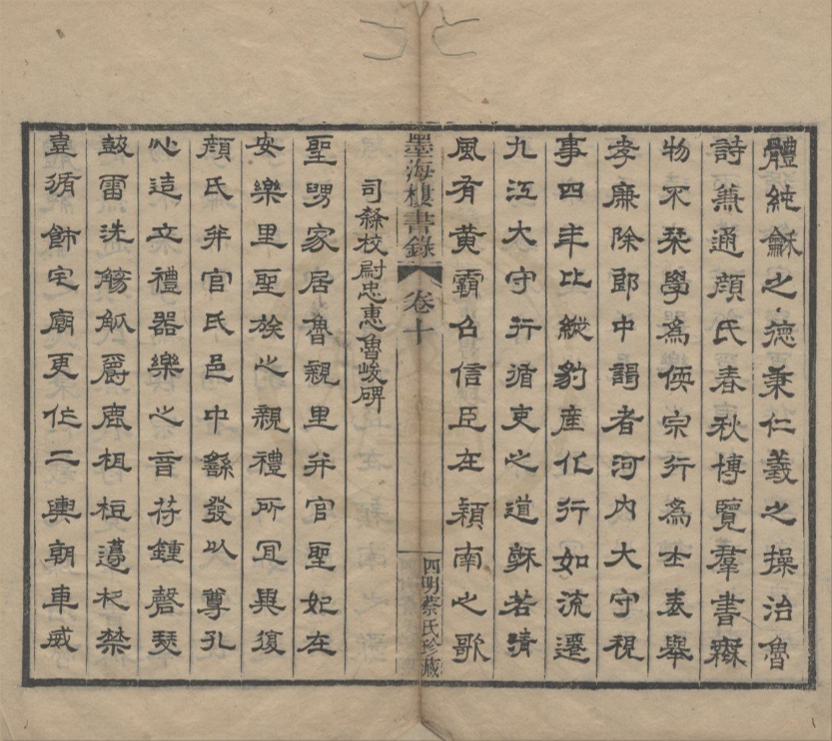 體純龢之德秉仁義之操治魯
詩兼通顔氏春秋博覽羣書無
物不栞學爲偄宗行爲士表舉
孝廉除郎中謁者河内大守視
事四年比縱豹産化行如流遷
九江大守行循吏之道穌若清
風有黃霸召信臣在穎南之歌
墨海樓書錄 卷十 四明蔡氏珍藏
司隸校尉忠惠魯峻碑
聖舅家居魯親里并官聖妃在
安樂里聖族之親禮所冝異復
顔氏并官氏邑中繇發以尊孔
心造立禮器樂之音苻鍾磬瑟
鼓雷洗觴觚爵鹿柤梪籩柉禁
壷循飾宅廟更作二輿朝車威